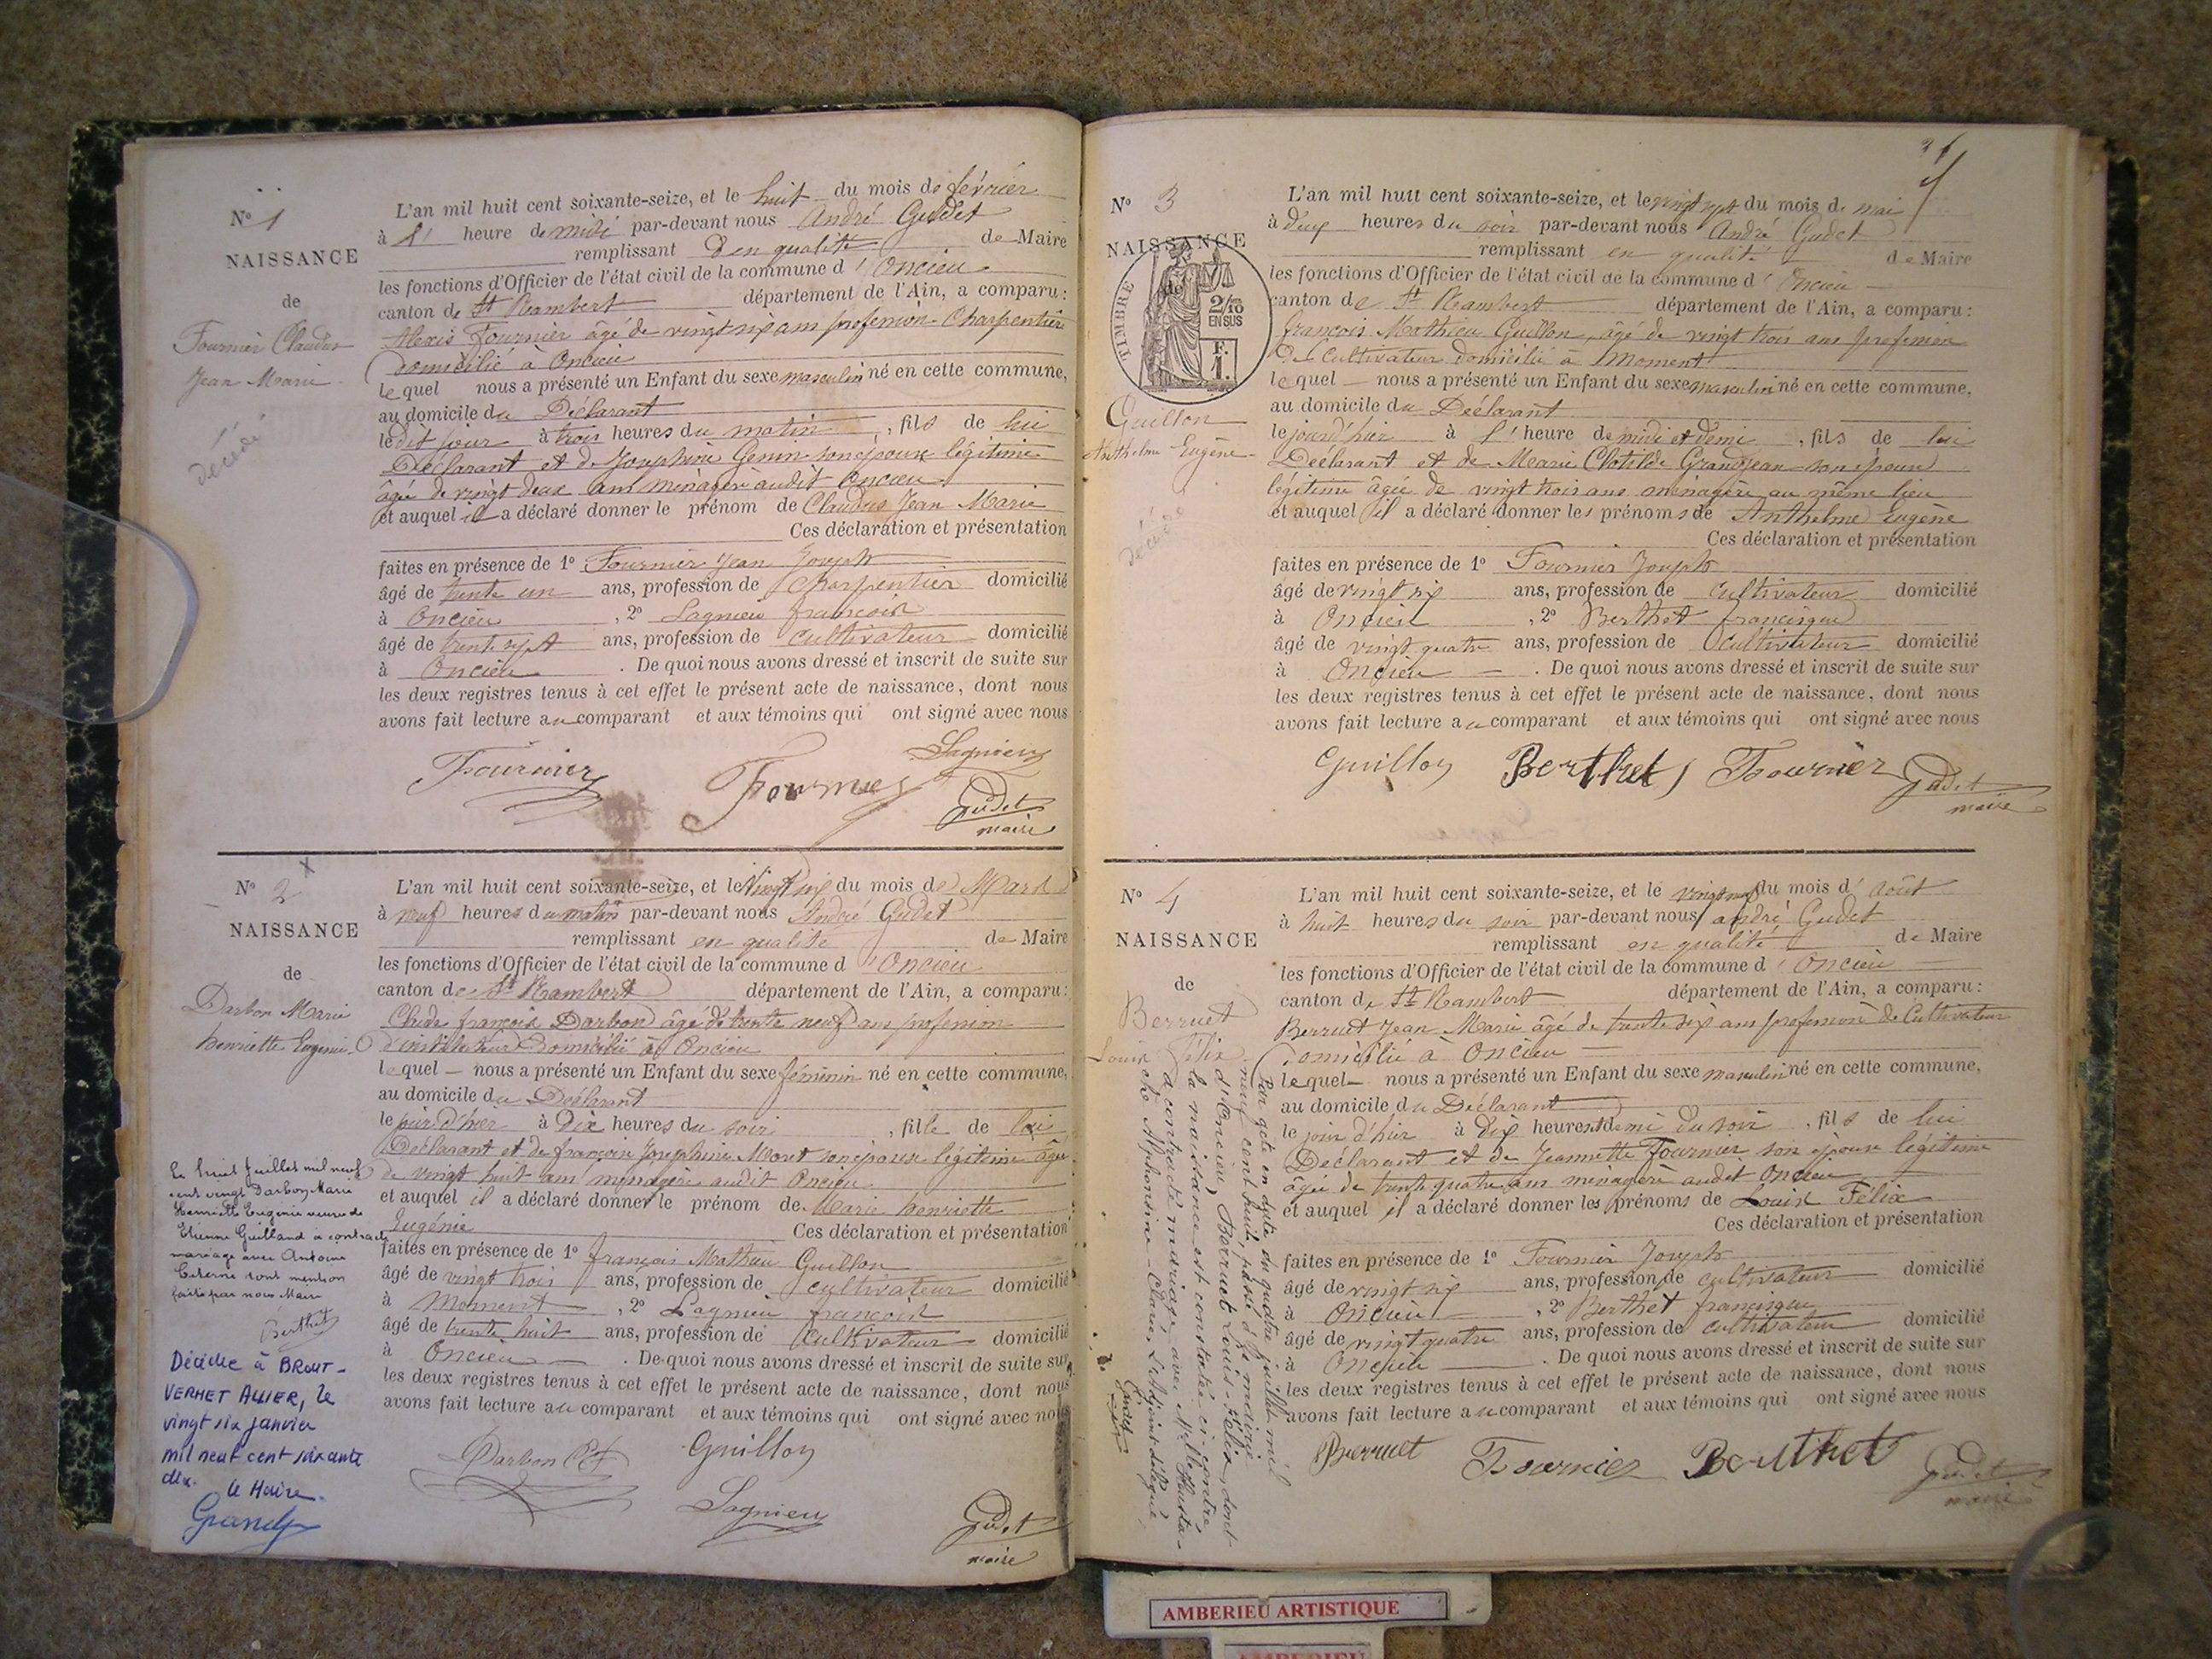 N° 1
NAISSANCE
de
Fournier Claudius
Jean Marie
décédé
L'an mil huit cent soixante-seize, et le huit du mois de février
à l' heure de midi par-devant nous André Gudet
remplissant en qualité de Maire
les fonctions d'Officier de l'état civil de la commune d'Oncieu
canton de St Rambert département de l'Ain, a comparu:
Alexis Fournier âgé de vingt six ans profession Charpentier
domicilié à Oncieu
lequel nous a présenté un Enfant du sexe masculin né en cette commune,
au domicile du Déclarant
ledit jour à trois heures du matin, fils de lui
Déclarant et de Josephine Genin son épouse légitime
âgée de vingt deux ans ménagère audit Oncieu
et auquel il a déclaré donner le prénom de Claudius Jean Marie
Ces déclaration et présentation
faites en présence de 1° Fournier Jean Joseph
âgé de trente un ans, profession de Charpentier domicilié
à Oncieu, 2° Lagnieu françois
âgé de trente sept ans, profession de cultivateur domicilié
à Oncieu. De quoi nous avons dressé et inscrit de suite sur
les deux registres tenus à cet effet le présent acte de naissance, dont nous
avons fait lecture au comparant et aux témoins qui ont signé avec nous
Fournier Fournier Lagnieu
Gudet
maire
N° 2
NAISSANCE
de
Darbon Marie
henriette Eugénie
Le huit juillet mil neuf
cent vingt Darbon Marie
Henriette Eugénie veuve de
Etienne Guilland a contracté
mariage avec Antoine
Citerne dont mention
faite par nous Maire
Berthet
Décédée à BROUT-
VERNET ALLIER, le
vingt six janvier
mil neuf cent soixante
dix. Le Maire.
L'an mil huit cent soixante-seize, et le vingt six du mois de Mars
à neuf heures du matin par-devant nous André Gudet
remplissant en qualité de Maire
les fonctions d'Officier de l'état civil de la commune d'Oncieu
canton de St Rambert département de l'Ain, a comparu:
Claude françois Darbon âgé de trente neuf ans profession
d'instituteur domicilié à Oncieu
lequel nous a présenté un Enfant du sexe féminin né en cette commune,
au domicile du Déclarant
le jour d'hier à Dix heures du soir, fille de lui
Déclarant et de françoise Josephine Moret son épouse légitime âgée
de vingt huit ans ménagère audit Oncieu
et auquel il a déclaré donner le prénom de Marie henriette
Eugénie Ces déclaration et présentation
faites en présence de 1° françois Mathieu Guillon
âgé de vingt trois ans, profession de cultivateur domicilié
à Moment, 2° Lagnieu françois
âgé de trente huit ans, profession de Cultivateur domicilié
à Oncieu. De quoi nous avons dressé et inscrit de suite sur
les deux registres tenus à cet effet le présent acte de naissance, dont nous
avons fait lecture au comparant et aux témoins qui ont signé avec nous
Darbon Guillon
Lagnieu
Gudet
maire
N° 3
NAISSANCE
de
TIMBRE
2/10
EN SUS
F.
1.
Guillon
Anthelme Eugène
décédé
L'an mil huit cent soixante-seize, et le vingt sept du mois de mai
à deux heures du soir par-devant nous André Gudet
remplissant en qualité de Maire
les fonctions d'Officier de l'état civil de la commune d'Oncieu
canton de St Rambert département de l'Ain, a comparu:
françois Mathieu Guillon, âgé de vingt trois ans profession
de Cultivateur domicilié à Moment
lequel nous a présenté un Enfant du sexe masculin né en cette commune,
au domicile du Déclarant
le jourd'hui à l'heure de midi et demi, fils de lui
Déclarant et de Marie Clotilde Grandjean son épouse
légitime âgée de vingt trois ans ménagère au même lieu
et auquel il a déclaré donner les prénoms de Anthelme Eugène
Ces déclaration et présentation
faites en présence de 1° Fournier Joseph
âgé de vingt six ans, profession de Cultivateur domicilié
à Oncieu, 2° Berthet francisque
âgé de vingt quatre ans, profession de Cultivateur domicilié
à Oncieu. De quoi nous avons dressé et inscrit de suite sur
les deux registres tenus à cet effet le présent acte de naissance, dont nous
avons fait lecture au comparant et aux témoins qui ont signé avec nous
Guillon Berthet Fournier Gudet
maire
N° 4
NAISSANCE
de
Berruet
Louis Félix
Par acte en date du quatre juillet mil
neuf cent huit, passé à la mairie
d'Oncieu, Berruet Louis-Félix, dont
la naissance est constatée ci-contre,
a contracté mariage avec Melle
L'adjoint délégué,
Gudet
L'an mil huit cent soixante-seize, et le vingt neuf du mois d'Août
à huit heures du soir par-devant nous andré Gudet
remplissant en qualité de Maire
les fonctions d'Officier de l'état civil de la commune d'Oncieu
canton de St Rambert département de l'Ain, a comparu:
Berruet Jean Marie âgé de trente six ans profession de Cultivateur
domicilié à Oncieu
lequel nous a présenté un Enfant du sexe masculin né en cette commune,
au domicile du Déclarant
le jour d'hier à Dix heures et demi du soir, fils de lui
Déclarant et de Jeannette Fournier son épouse légitime
âgée de trente quatre ans ménagère audit Oncieu
et auquel il a déclaré donner les prénoms de Louis Félix
Ces déclaration et présentation
faites en présence de 1° Fournier Joseph
âgé de vingt six ans, profession de cultivateur domicilié
à Oncieu, 2° Berthet francisque
âgé de vingt quatre ans, profession de cultivateur domicilié
à Oncieu. De quoi nous avons dressé et inscrit de suite sur
les deux registres tenus à cet effet le présent acte de naissance, dont nous
avons fait lecture au comparant et aux témoins qui ont signé avec nous
Berruet Fournier Berthet Gudet
maire
AMBERIEU ARTISTIQUE
AMBERIEU